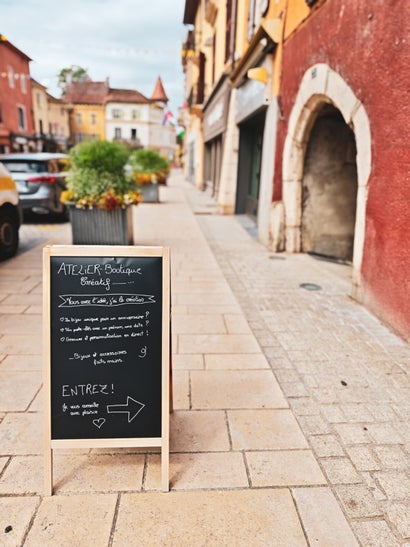 ATELIER-Boutique
Créatif
Vous avez l'idée, j'ai la création
Un bijou unique pour un anniversaire ?
Un porte-clés avec un prénom, une date ?
Gravure et personnalisation en direct !
Bijoux et accessoires
faits mains.
ENTREZ !
Je vous accueille
avec plaisir